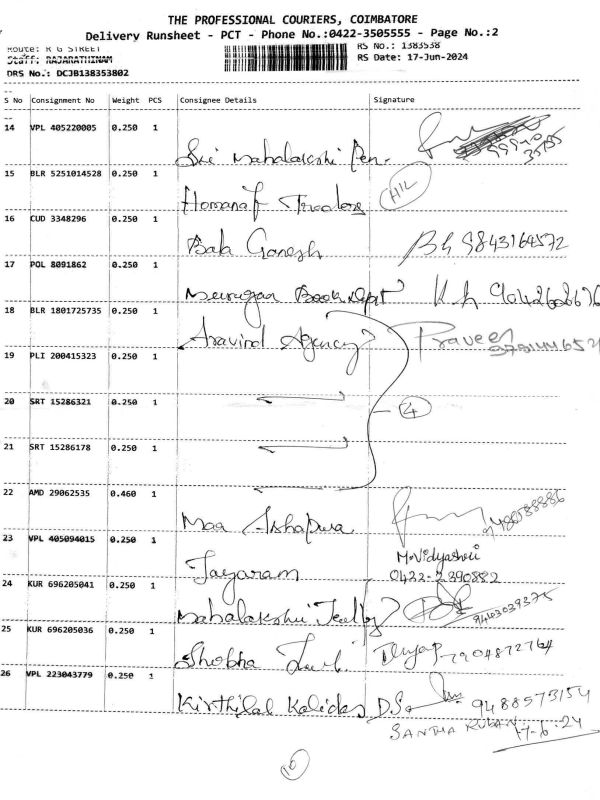 THE PROFESSIONAL COURIERS, COIMBATORE
Delivery Runsheet - PCT - Phone No.:0422-3505555 - Page No.:2
Route: R G STREET RS No.: 1383538
Staff: RAJARATHINAM RS Date: 17-Jun-2024
DRS No.: DCJB138353802
S No Consignment No Weight PCS Consignee Details Signature
14 VPL 405220005 0.250 1
Sri Mahalakshmi Pen.
15 BLR 5251014528 0.250 1
H/L
16 CUD 3348296 0.250 1
Bala Ganesh 9843164572
17 POL 8091862 0.250 1
Murugan Book Dept
18 BLR 1801725735 0.250 1
Aravind Agency Praveen
19 PLI 200415323 0.250 1
20 SRT 15286321 0.250 1
4
21 SRT 15286178 0.250 1
22 AMD 29062535 0.460 1
Maa Ashapura
23 VPL 405094015 0.250 1
M.Vidyashri
Jayaram 0422-2390882
24 KUR 696205041 0.250 1
Mahalakshmi
25 KUR 696205036 0.250 1
Shobha 7904872764
26 VPL 223043779 0.250 1
Kirthilal Kalidas D.S. 9488573154
17-6-24